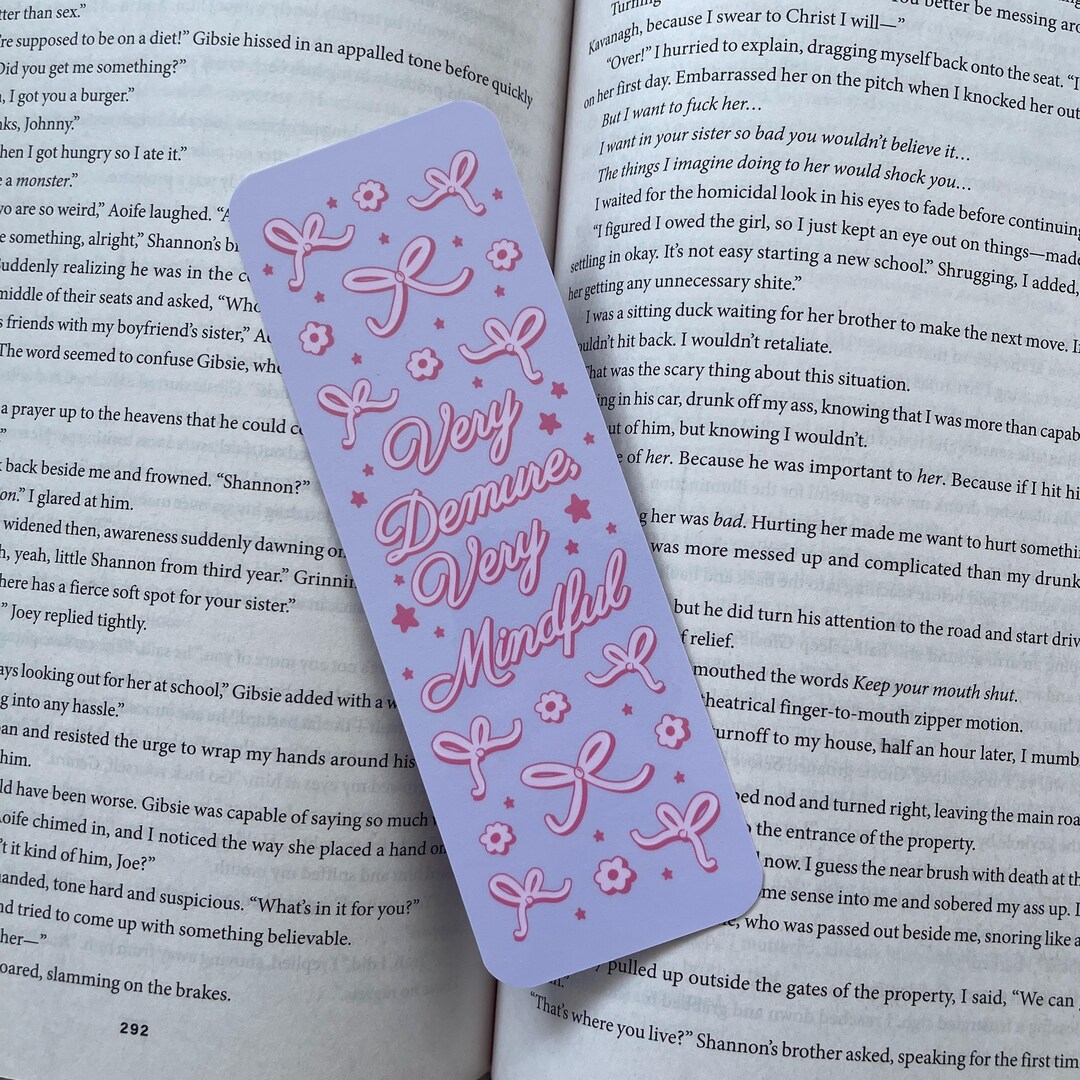 tter than sex.”
’re supposed to be on a diet!” Gibsie hissed in an appalled tone before quickly
Did you get me something?”
, I got you a burger.”
nks, Johnny.”
hen I got hungry so I ate it.”
e a monster.”
wo are so weird,” Aoife laughed. “A
e something, alright,” Shannon’s br
Suddenly realizing he was in the c
middle of their seats and asked, “Who
s friends with my boyfriend’s sister,” A
The word seemed to confuse Gibsie, who
a prayer up to the heavens that he could c
”
k back beside me and frowned. “Shannon?”
on.” I glared at him.
widened then, awareness suddenly dawning on
h, yeah, little Shannon from third year.” Grinnin
here has a fierce soft spot for your sister.”
” Joey replied tightly.
ays looking out for her at school,” Gibsie added with a w
g into any hassle.”
an and resisted the urge to wrap my hands around his
him.
ld have been worse. Gibsie was capable of saying so much
Aoife chimed in, and I noticed the way she placed a hand on
’t it kind of him, Joe?”
anded, tone hard and suspicious. “What’s in it for you?”
nd tried to come up with something believable.
her—”
oared, slamming on the brakes.
292
Very
Demure,
Very
Mindful
Turning
better be messing aro
Kavanagh, because I swear to Christ I will—”
“Over!” I hurried to explain, dragging myself back onto the seat. “I
on her first day. Embarrassed her on the pitch when I knocked her out
But I want to fuck her…
I want in your sister so bad you wouldn’t believe it…
The things I imagine doing to her would shock you…
I waited for the homicidal look in his eyes to fade before continuing
“I figured I owed the girl, so I just kept an eye out on things—made
settling in okay. It’s not easy starting a new school.” Shrugging, I added,
her getting any unnecessary shite.”
I was a sitting duck waiting for her brother to make the next move. I
ouldn’t hit back. I wouldn’t retaliate.
That was the scary thing about this situation.
ing in his car, drunk off my ass, knowing that I was more than capab
ut of him, but knowing I wouldn’t.
e of her. Because he was important to her. Because if I hit hi
g her was bad. Hurting her made me want to hurt somethi
was more messed up and complicated than my drunk
but he did turn his attention to the road and start driv
f relief.
mouthed the words Keep your mouth shut.
heatrical finger-to-mouth zipper motion.
turnoff to my house, half an hour later, I mumb
ped nod and turned right, leaving the main roa
the entrance of the property.
now. I guess the near brush with death at th
me sense into me and sobered my ass up. I
e, who was passed out beside me, snoring like a
y pulled up outside the gates of the property, I said, “We can
“That’s where you live?” Shannon’s brother asked, speaking for the first tim